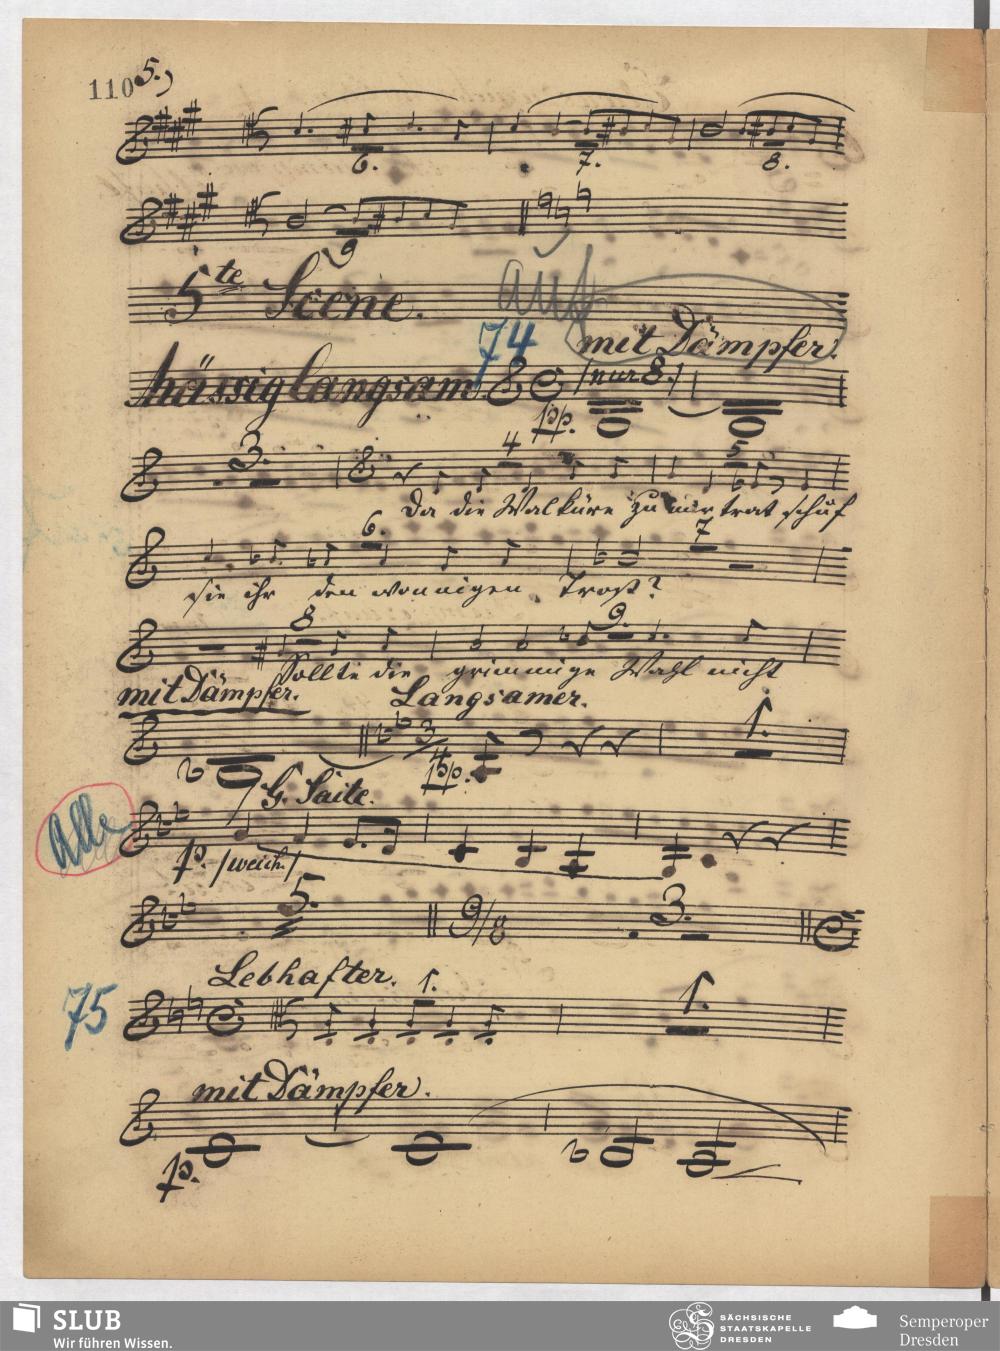 110
5.)
6. 7. 8.
9
5te Scene.
auf
74
mit Dämpfer.
Mässig langsam. (nur 8.)
pp.
3. 4 5
Da die Walküre zu mir trat schuf
6. 7
sie ihr den wonnigen Trost?
8 9.
Sollte die grimmige Wahl nicht
mit Dämpfer. Langsamer.
3/4 1.
pp.
G. Saite.
Alle
p. (weich.)
5. 9/8 3.
Lebhafter. 1.
75 1.
mit Dämpfer.
p.
SLUB
Wir führen Wissen.
SÄCHSISCHE
STAATSKAPELLE
DRESDEN
Semperoper
Dresden